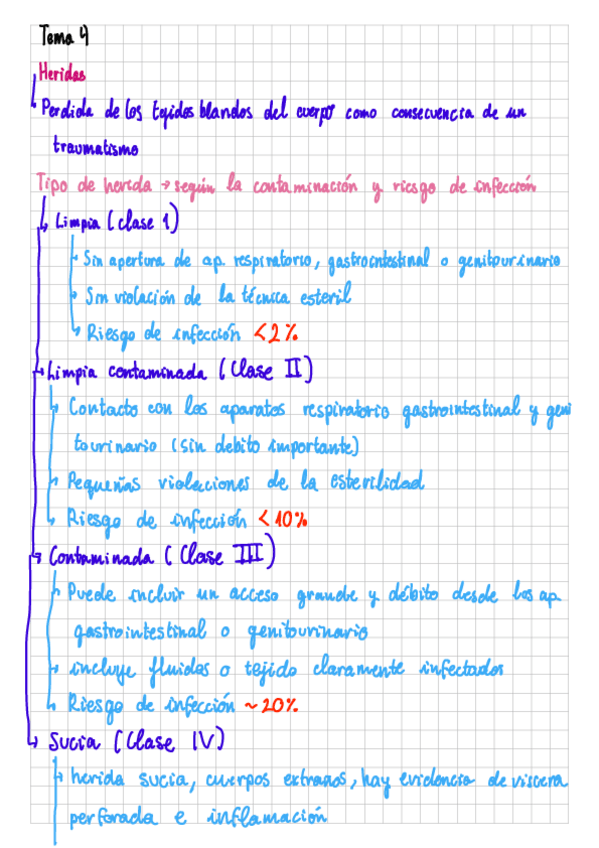 Tema 4
Heridas
Perdida de los tejidos blandos del cuerpo como consecuencia de un
traumatismo
Tipo de herida → según la contaminación y riesgo de infección
Limpia (clase 1)
Sin apertura de ap. respiratorio, gastrointestinal o genitourinario
Sin violación de la técnica esteril
Riesgo de infección <2%
Limpia contaminada (Clase II)
Contacto con los aparatos respiratorio gastrointestinal y geni
tourinario (sin debito importante)
Pequeñas violaciones de la esterilidad
Riesgo de infección <10%
Contaminada (Clase III)
Puede incluir un acceso grande y débito desde los ap.
gastrointestinal o genitourinario
incluye fluidos o tejido claramente infectados
Riesgo de infección ~20%
Sucia (Clase IV)
herida sucia, cuerpos extraños, hay evidencia de viscera
perforada e inflamación